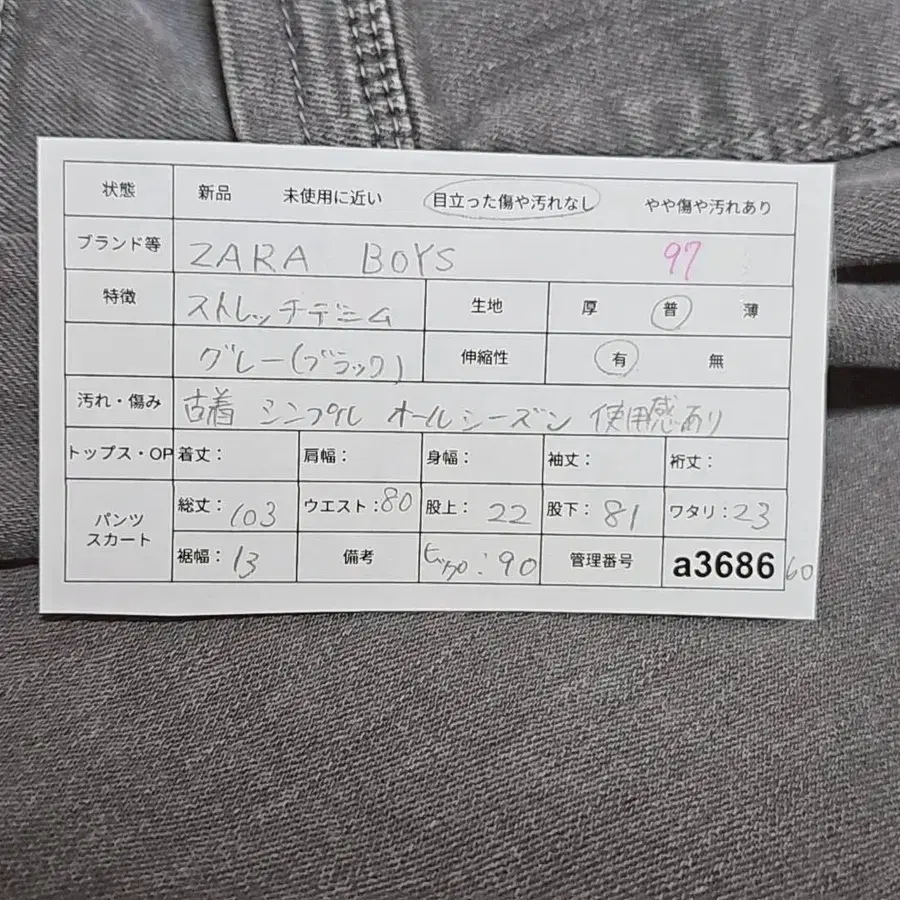 状態 新品 未使用に近い 目立った傷や汚れなし やや傷や汚れあり
ブランド等 ZARA BOYS 97
特徴 ストレッチデニム 生地 厚 普 薄
グレー(ブラック) 伸縮性 有 無
汚れ・傷み 古着 シンプル オールシーズン 使用感あり
トップス・OP 着丈: 肩幅: 身幅: 袖丈: 裄丈:
パンツ スカート 総丈:103 ウエスト:80 股上:22 股下:81 ワタリ:23
裾幅:13 備考 ヒップ:90 管理番号 a3686 60